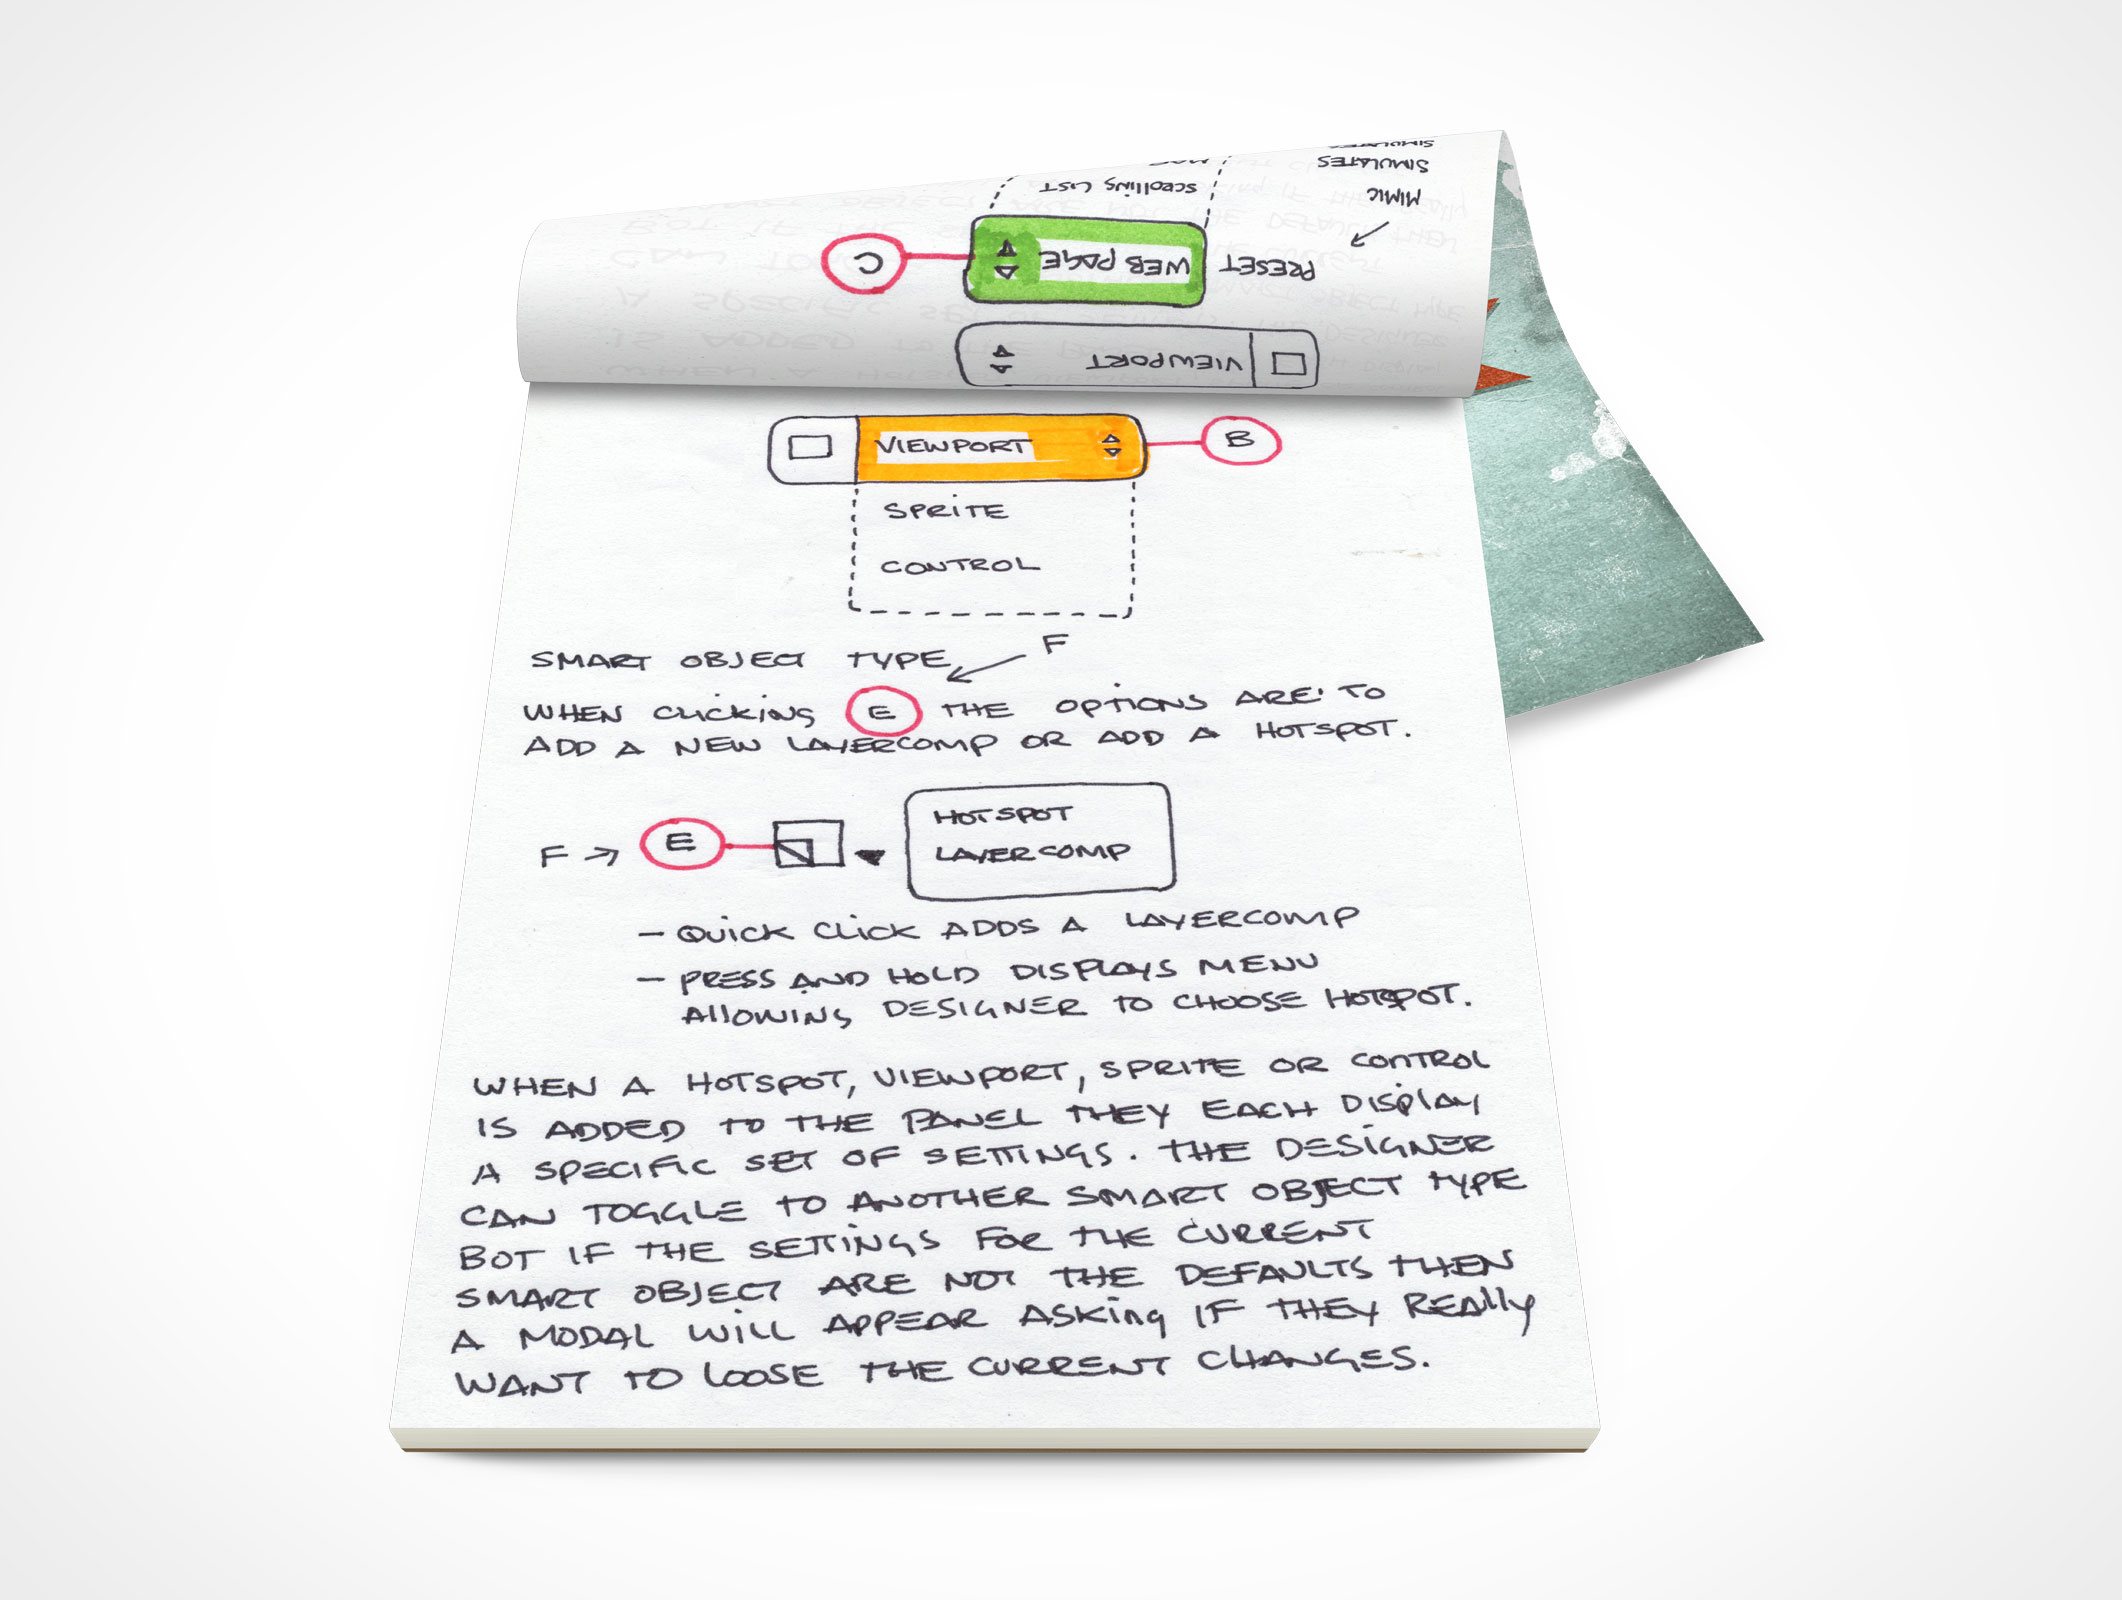 SIMULATES
MIMIC
SCROLLING LIST
PRESET
WEB PAGE
C
VIEWPORT
VIEWPORT
B
SPRITE
CONTROL
SMART OBJECT TYPE
F
WHEN CLICKING E THE OPTIONS ARE: TO
ADD A NEW LAYERCOMP OR ADD A HOTSPOT.
F → E
HOTSPOT
LAYERCOMP
– QUICK CLICK ADDS A LAYERCOMP
– PRESS AND HOLD DISPLAYS MENU
ALLOWING DESIGNER TO CHOOSE HOTSPOT.
WHEN A HOTSPOT, VIEWPORT, SPRITE OR CONTROL
IS ADDED TO THE PANEL THEY EACH DISPLAY
A SPECIFIC SET OF SETTINGS. THE DESIGNER
CAN TOGGLE TO ANOTHER SMART OBJECT TYPE
BOT IF THE SETTINGS FOR THE CURRENT
SMART OBJECT ARE NOT THE DEFAULTS THEN
A MODAL WILL APPEAR ASKING IF THEY REALLY
WANT TO LOOSE THE CURRENT CHANGES.